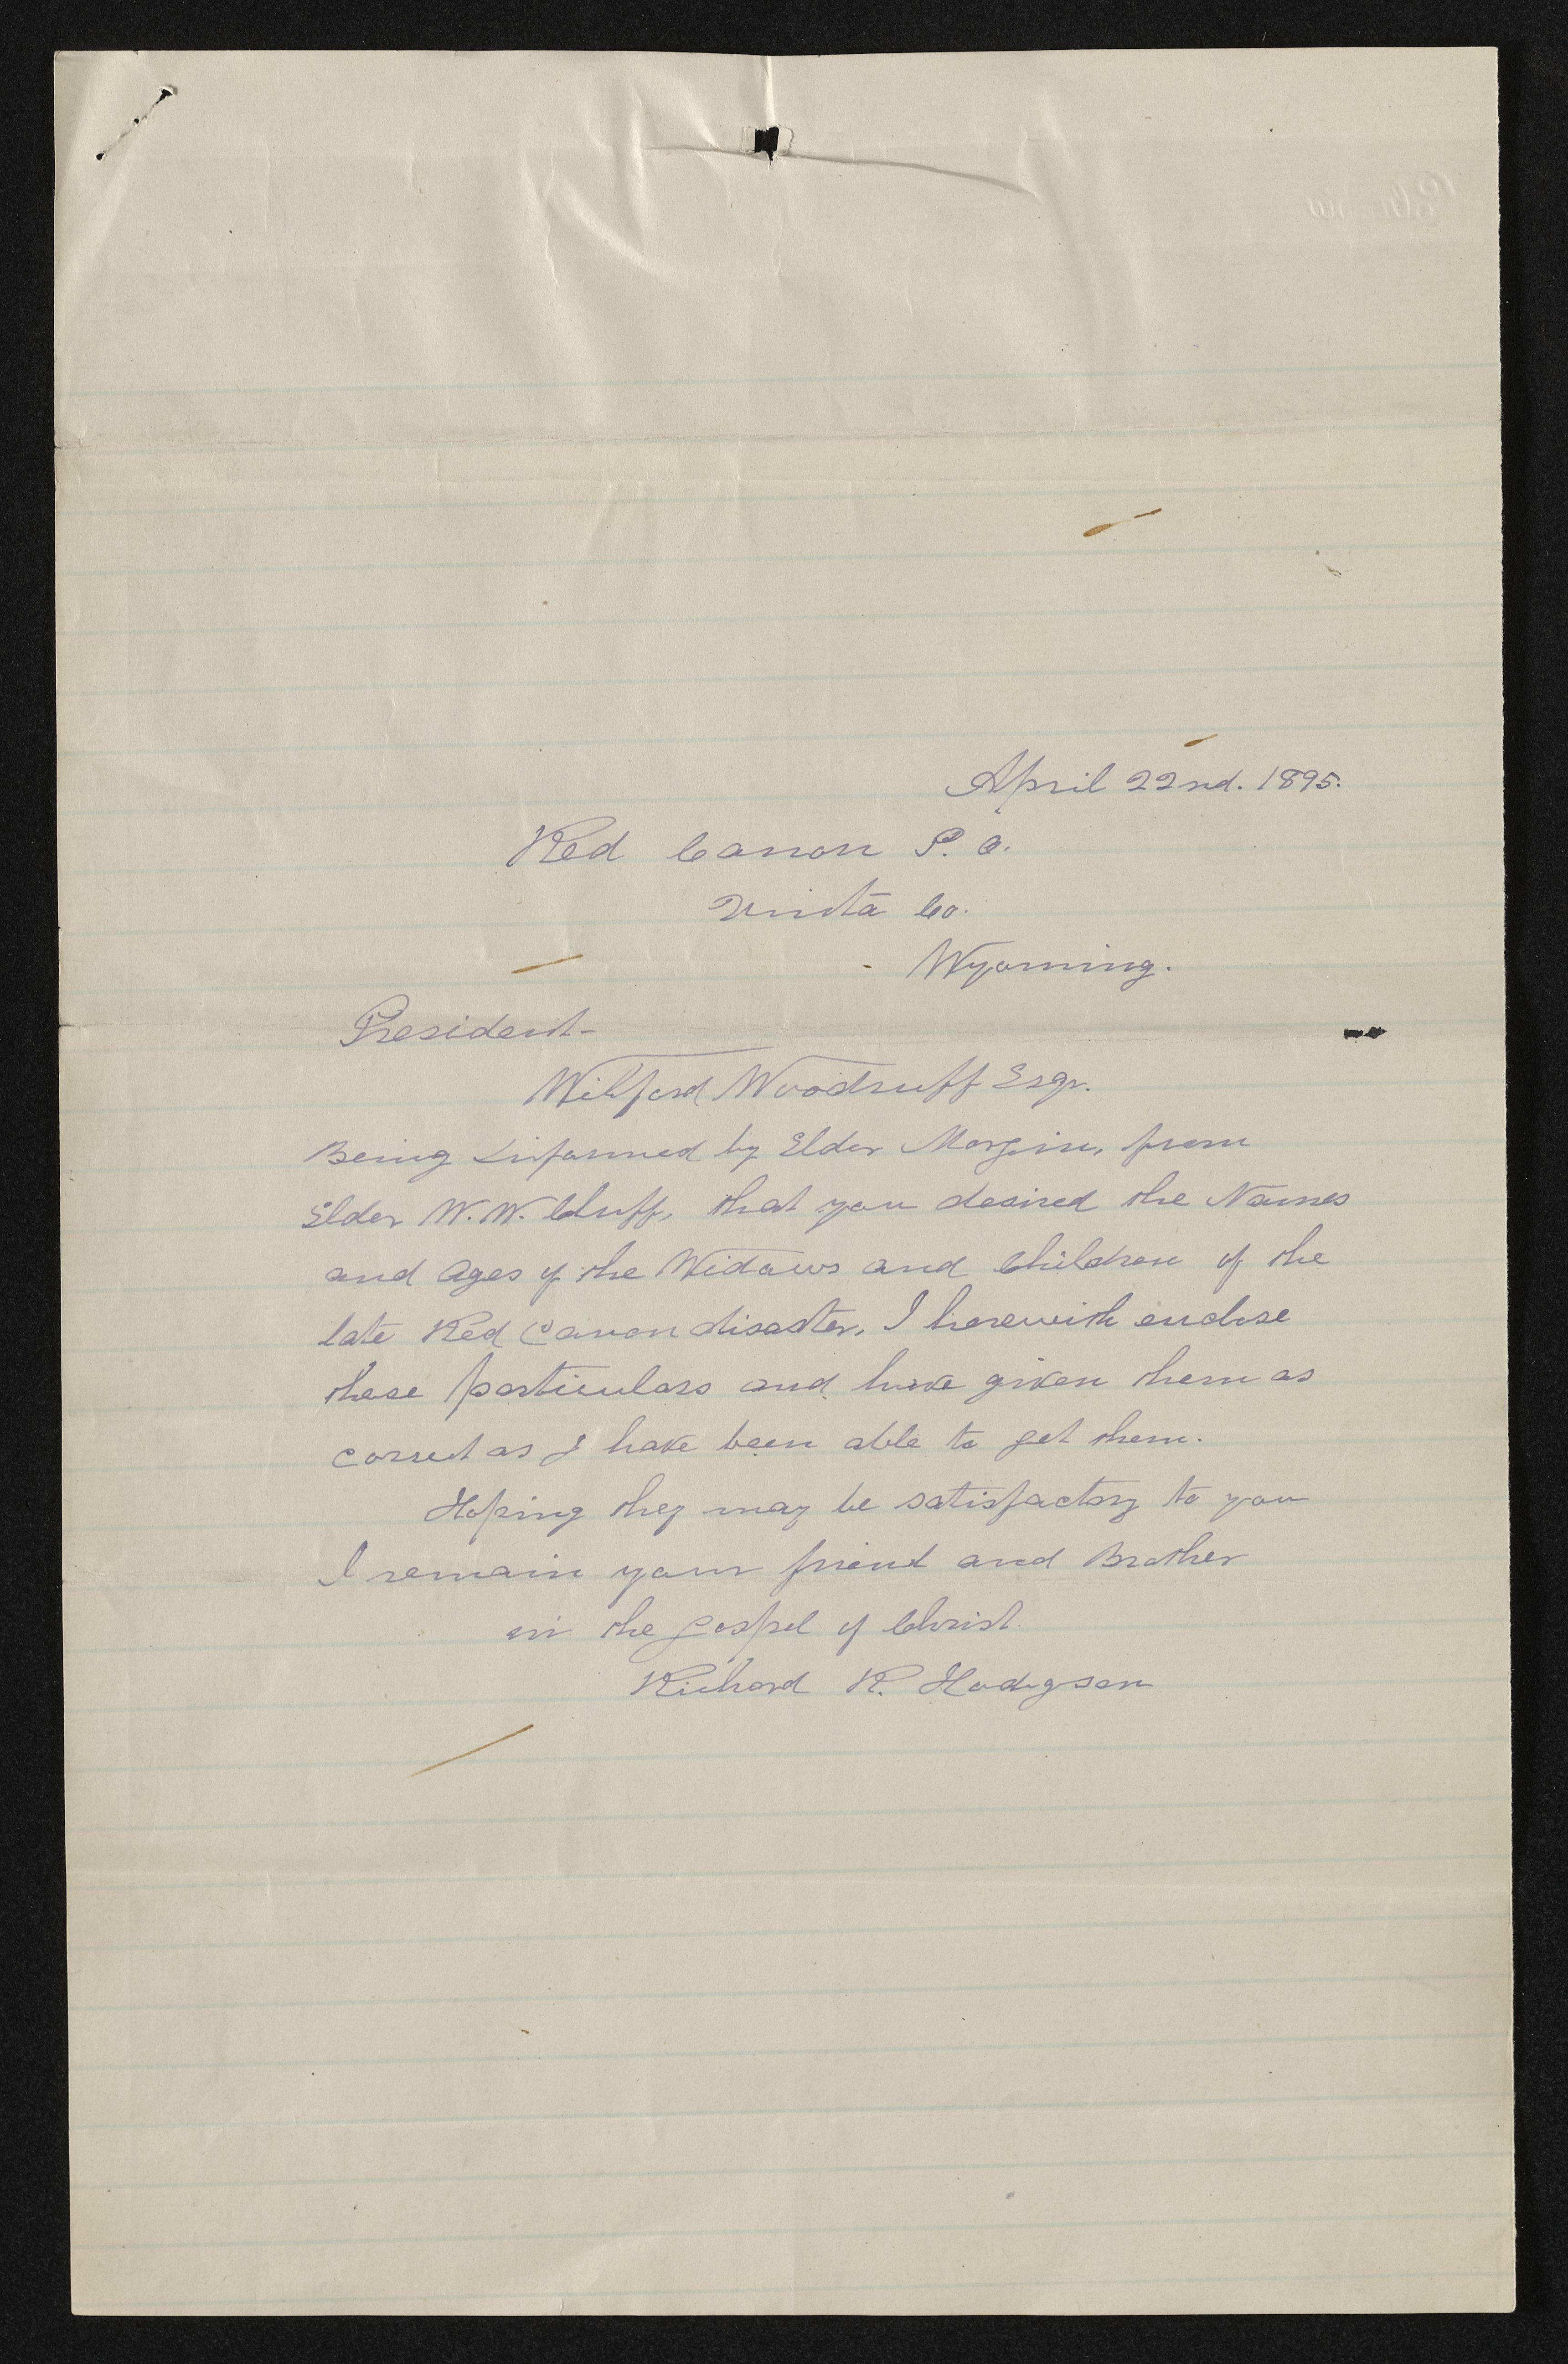 April 22nd. 1895.
Red Canon P. O.
Uinta Co.
Wyoming.
President-
Wilford Woodruff Esqr.
Being informed by Elder Morgin, from
Elder W. W. Cluff, that you desired the Names
and Ages of the Widows and Children of the
late Red Canon disaster, I herewith enclose
these particulars and have given them as
correct as I have been able to get them.
Hoping they may be satisfactory to you
I remain your friend and Brother
in the Gospel of Christ.
Richard R. Hodgson